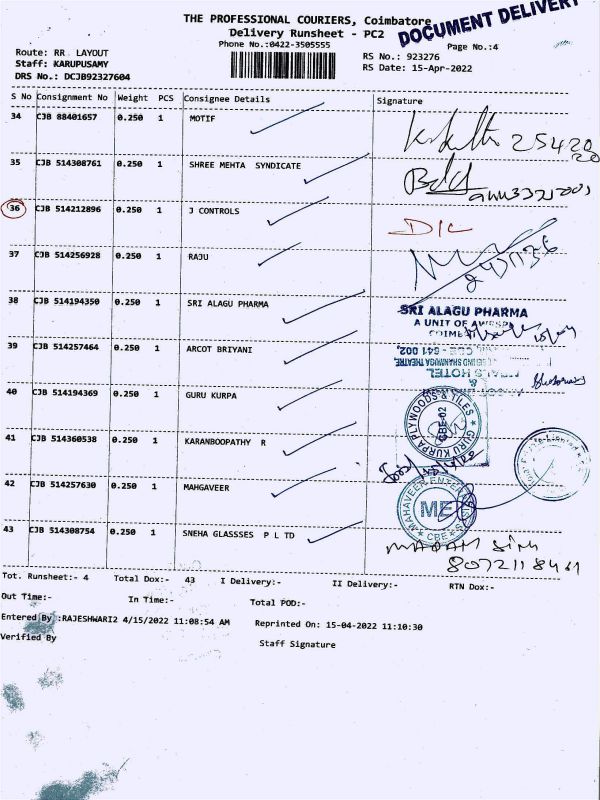 THE PROFESSIONAL COURIERS, Coimbatore
Delivery Runsheet - PC2
DOCUMENT DELIVERY
Phone No.:0422-3505555
Page No.:4
Route: RR LAYOUT
Staff: KARUPUSAMY
DRS No.: DCJB92327604
RS No.: 923276
RS Date: 15-Apr-2022
S No Consignment No Weight PCS Consignee Details Signature
34 CJB 88401657 0.250 1 MOTIF
35 CJB 514308761 0.250 1 SHREE MEHTA SYNDICATE
36 CJB 514212896 0.250 1 J CONTROLS D/L
37 CJB 514256928 0.250 1 RAJU
38 CJB 514194350 0.250 1 SRI ALAGU PHARMA
SRI ALAGU PHARMA
A UNIT OF
39 CJB 514257464 0.250 1 ARCOT BRIYANI
BEHIND SHANMUGA THEATRE,
CBE - 641 002,
HOTEL
40 CJB 514194369 0.250 1 GURU KURPA
GURU KURPA PLYWOODS & TILES
CBE-02
41 CJB 514360538 0.250 1 KARANBOOPATHY R
42 CJB 514257630 0.250 1 MAHGAVEER
MAHAVEER
ME
CBE
43 CJB 514308754 0.250 1 SNEHA GLASSSES P L TD
8072118461
Tot. Runsheet:- 4 Total Dox:- 43 I Delivery:- II Delivery:- RTN Dox:-
Out Time:- In Time:- Total POD:-
Entered By :RAJESHWARI2 4/15/2022 11:08:54 AM Reprinted On: 15-04-2022 11:10:30
Verified By Staff Signature